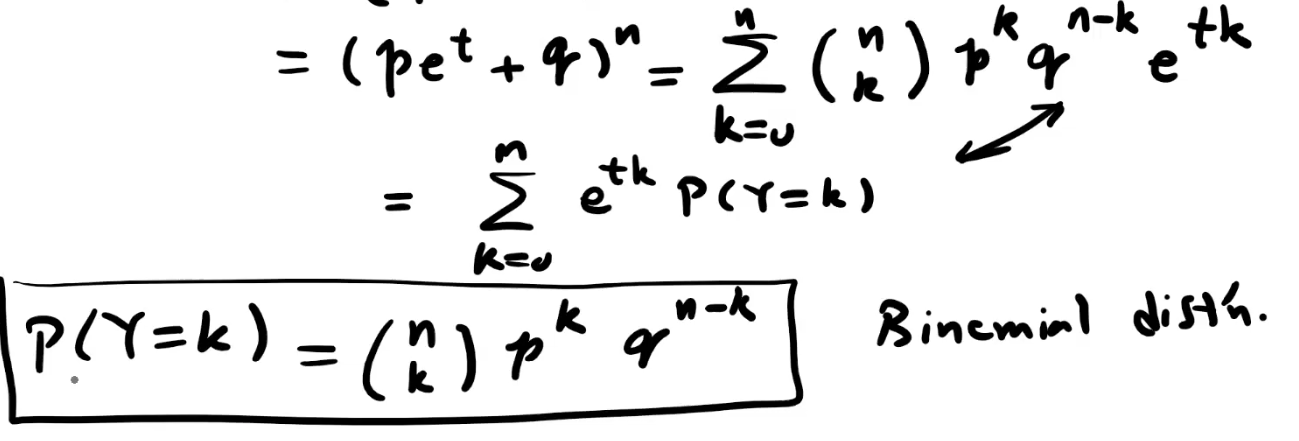 = (pe^t + q)^n = \sum_{k=0}^{n} \binom{n}{k} p^k q^{n-k} e^{tk}
= \sum_{k=0}^{n} e^{tk} P(Y=k)
P(Y=k) = \binom{n}{k} p^k q^{n-k} Binomial dist'n.